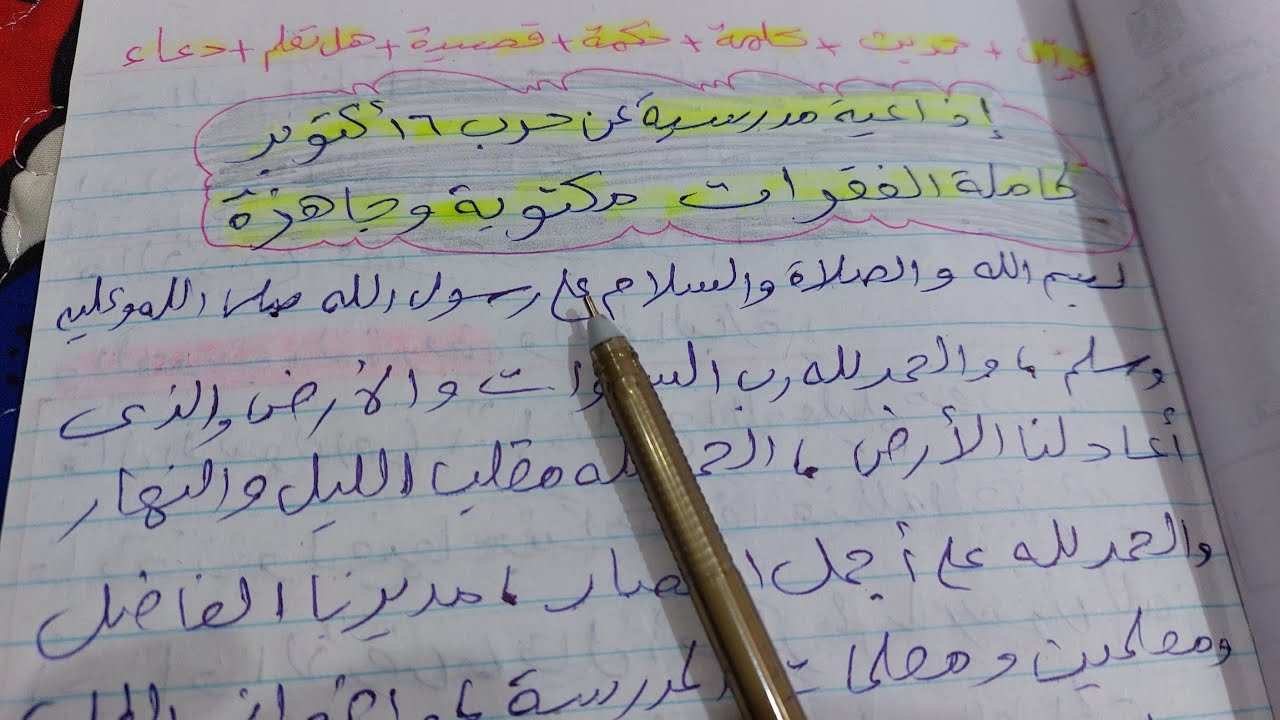 قرآن + حديث + كلمة + حكمة + قصيدة + هل تعلم + دعاء
إذاعية مدرسية عن حرب ٦ أكتوبر
كاملة الفقرات مكتوبة وجاهزة
بسم الله والصلاة والسلام على رسول الله صلى الله وعليه
وسلم ، والحمد لله رب السموات والأرض والذى
أعاد لنا الأرض ، الحمد لله مقلب الليل والنهار
والحمد لله على أجمل انتصار ، مديرنا الفاضل
ومعلمين ومعلمات المدرسة